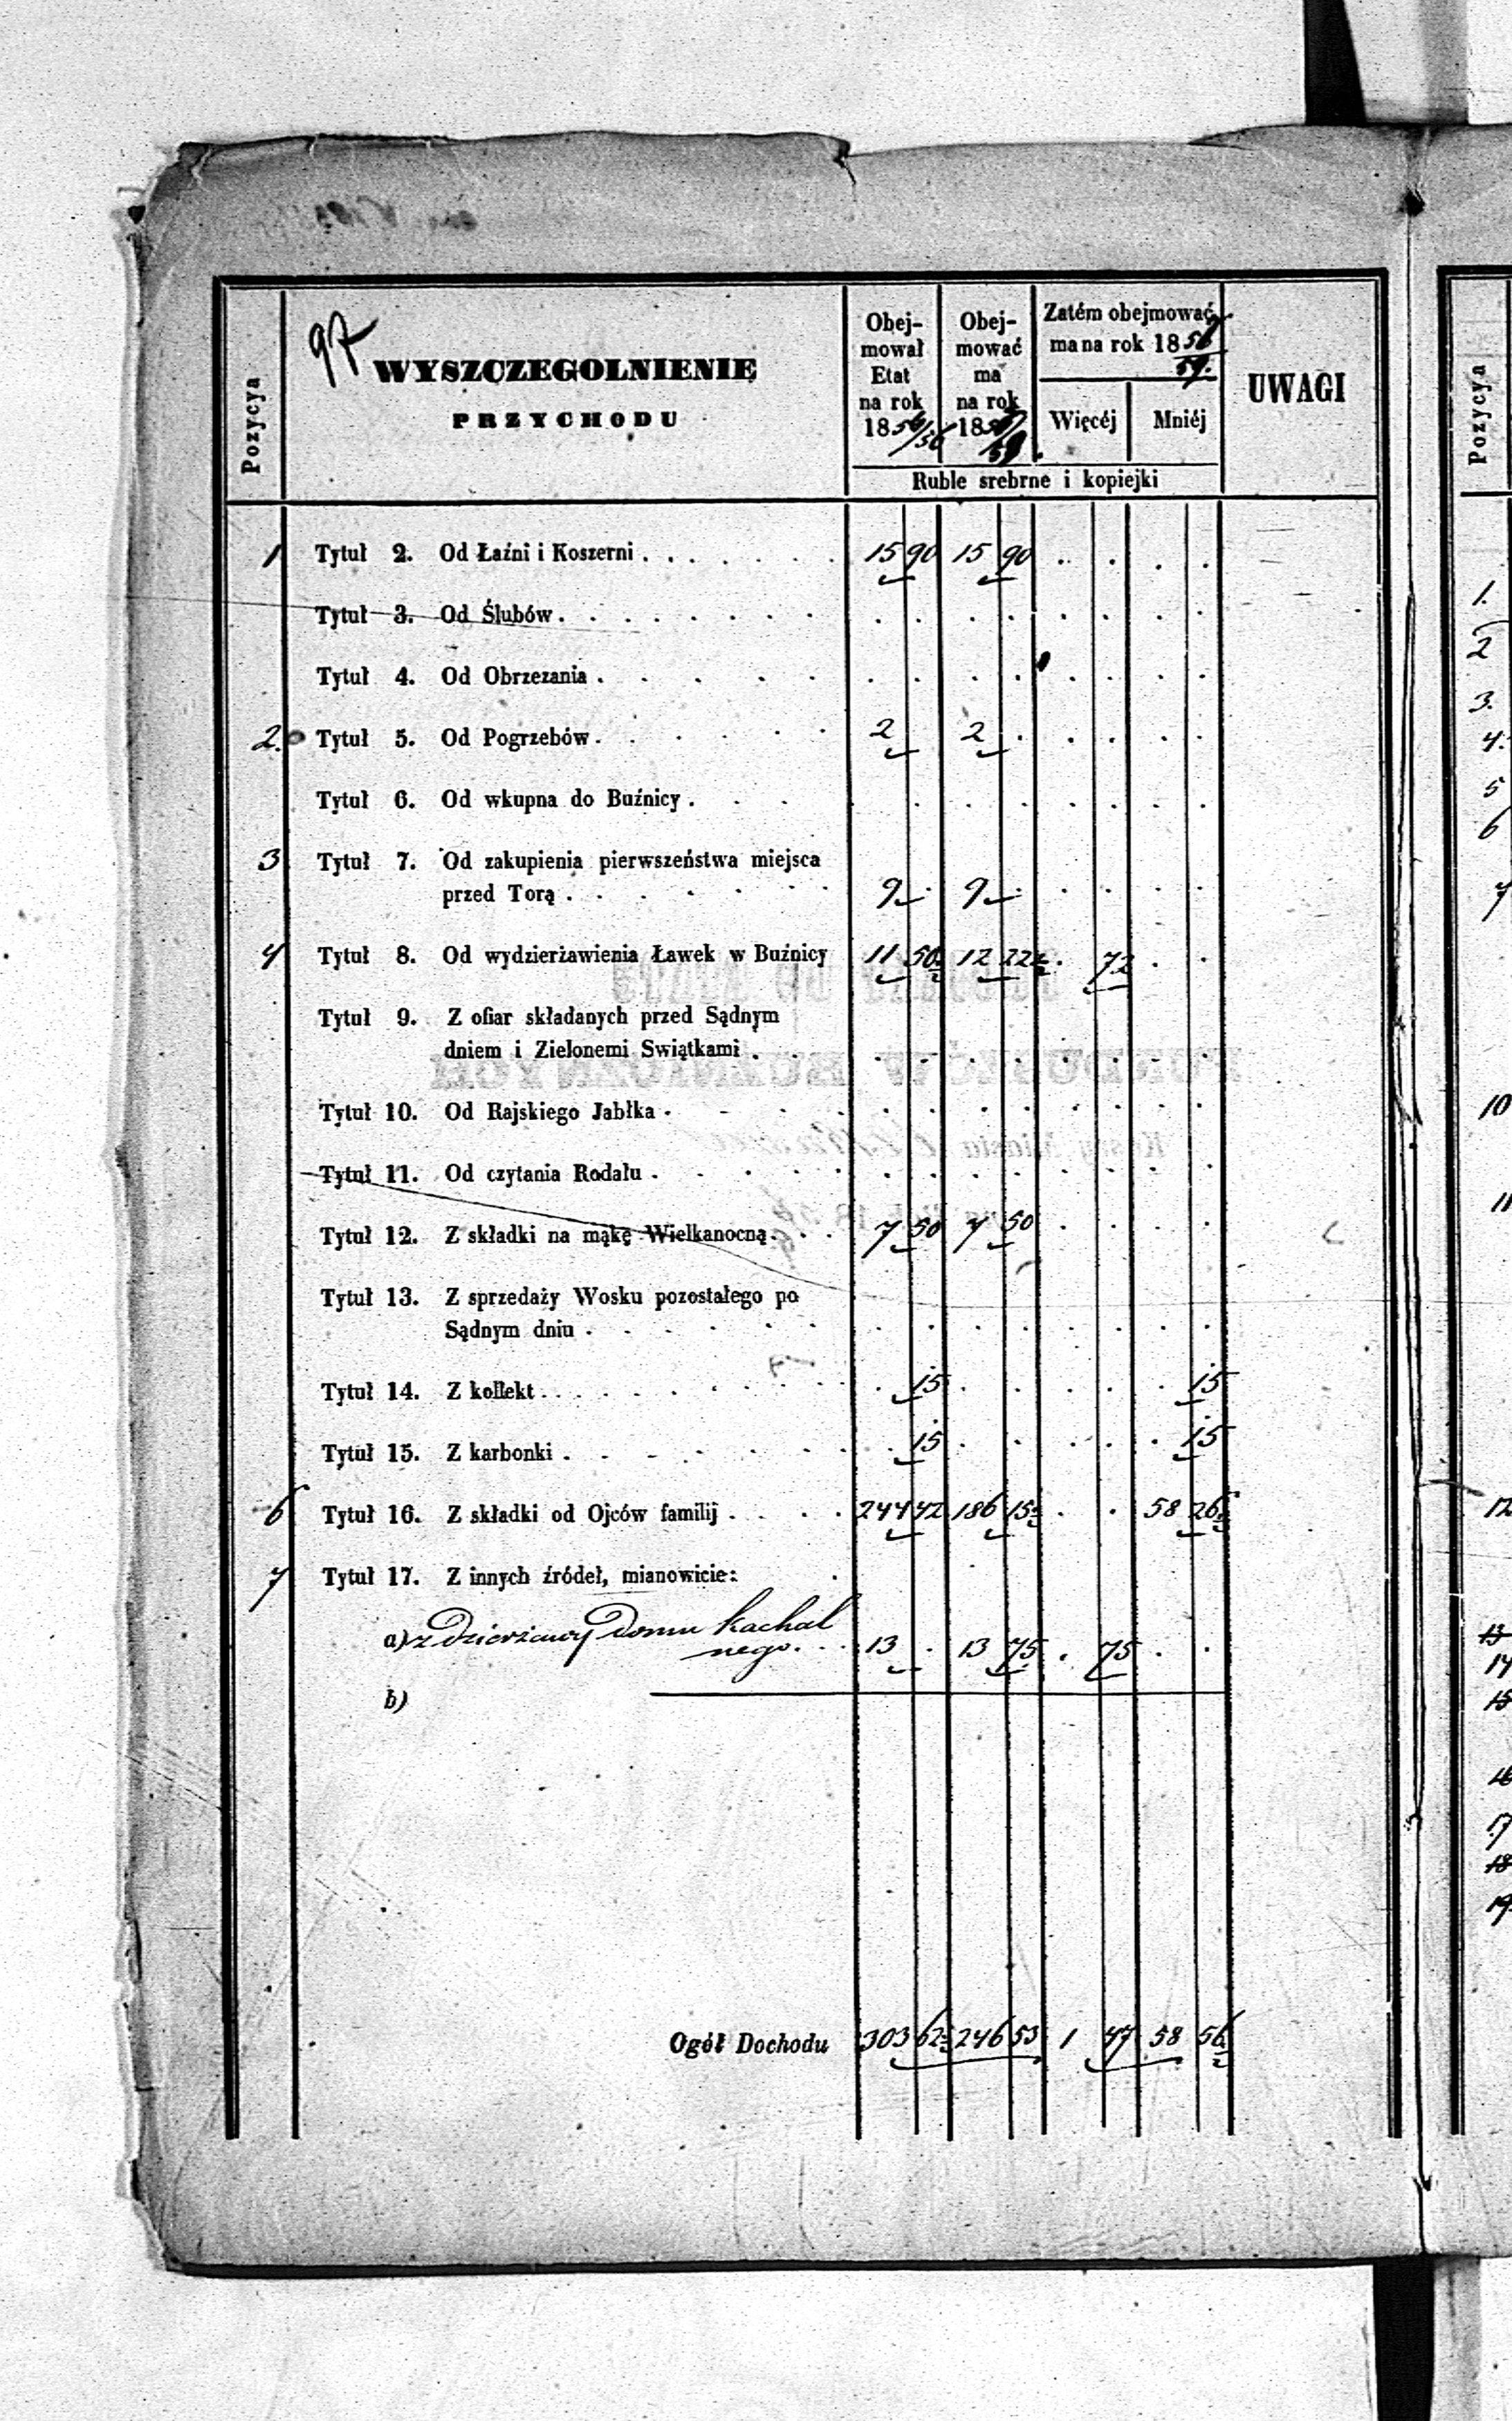 97
Pozycya
WYSZCZEGOLNIENIE
PRZYCHODU
Obej-
mował
Etat
na rok
1854/56
Obej-
mować
ma
na rok
18
Zatém obejmować
ma na rok 18
59.
Więcéj Mniéj
Ruble srebrne i kopiejki
UWAGI
1 Tytuł 2. Od Łaźni i Koszerni . . . . . . . 15 90 15 90 . . . .
Tytuł 3. Od Ślubów . . . . . . . .
Tytuł 4. Od Obrzezania . . . . . .
2. Tytuł 5. Od Pogrzebów . . . . . . 2 2 . . . . .
Tytuł 6. Od wkupna do Buźnicy . . .
3 Tytuł 7. Od zakupienia pierwszeństwa miejsca
przed Torą . . . . . . . 9 . 9 . . . . .
4 Tytuł 8. Od wydzierżawienia Ławek w Buźnicy 11 50½ 12 22½ . 72 . .
Tytuł 9. Z ofiar składanych przed Sądnym
dniem i Zielonemi Swiątkami . .
Tytuł 10. Od Rajskiego Jabłka . . . .
Tytuł 11. Od czytania Rodału . . . . .
Tytuł 12. Z składki na mąkę Wielkanocną . . . 7 50 7 50 . . . .
Tytuł 13. Z sprzedaży Wosku pozostałego po
Sądnym dniu . . . . . . .
Tytuł 14. Z kollekt . . . . . . . . . 15 . . . . . 15
Tytuł 15. Z karbonki . . . . . . . . 15 . . . . . 15
6 Tytuł 16. Z składki od Ojców familij . . . . 244 42 186 15½ . . 58 26½
7 Tytuł 17. Z innych źródeł, mianowicie:
a) z Dzierżawy Domu kachal
nego . . . 13 . 13 75 . 75 . .
b)
Ogół Dochodu 303 62½ 246 53 1 47 58 56½
Pozycya
1.
2
3.
4.
5
6
7
10
11
12
13
14
15
16
17
18
19